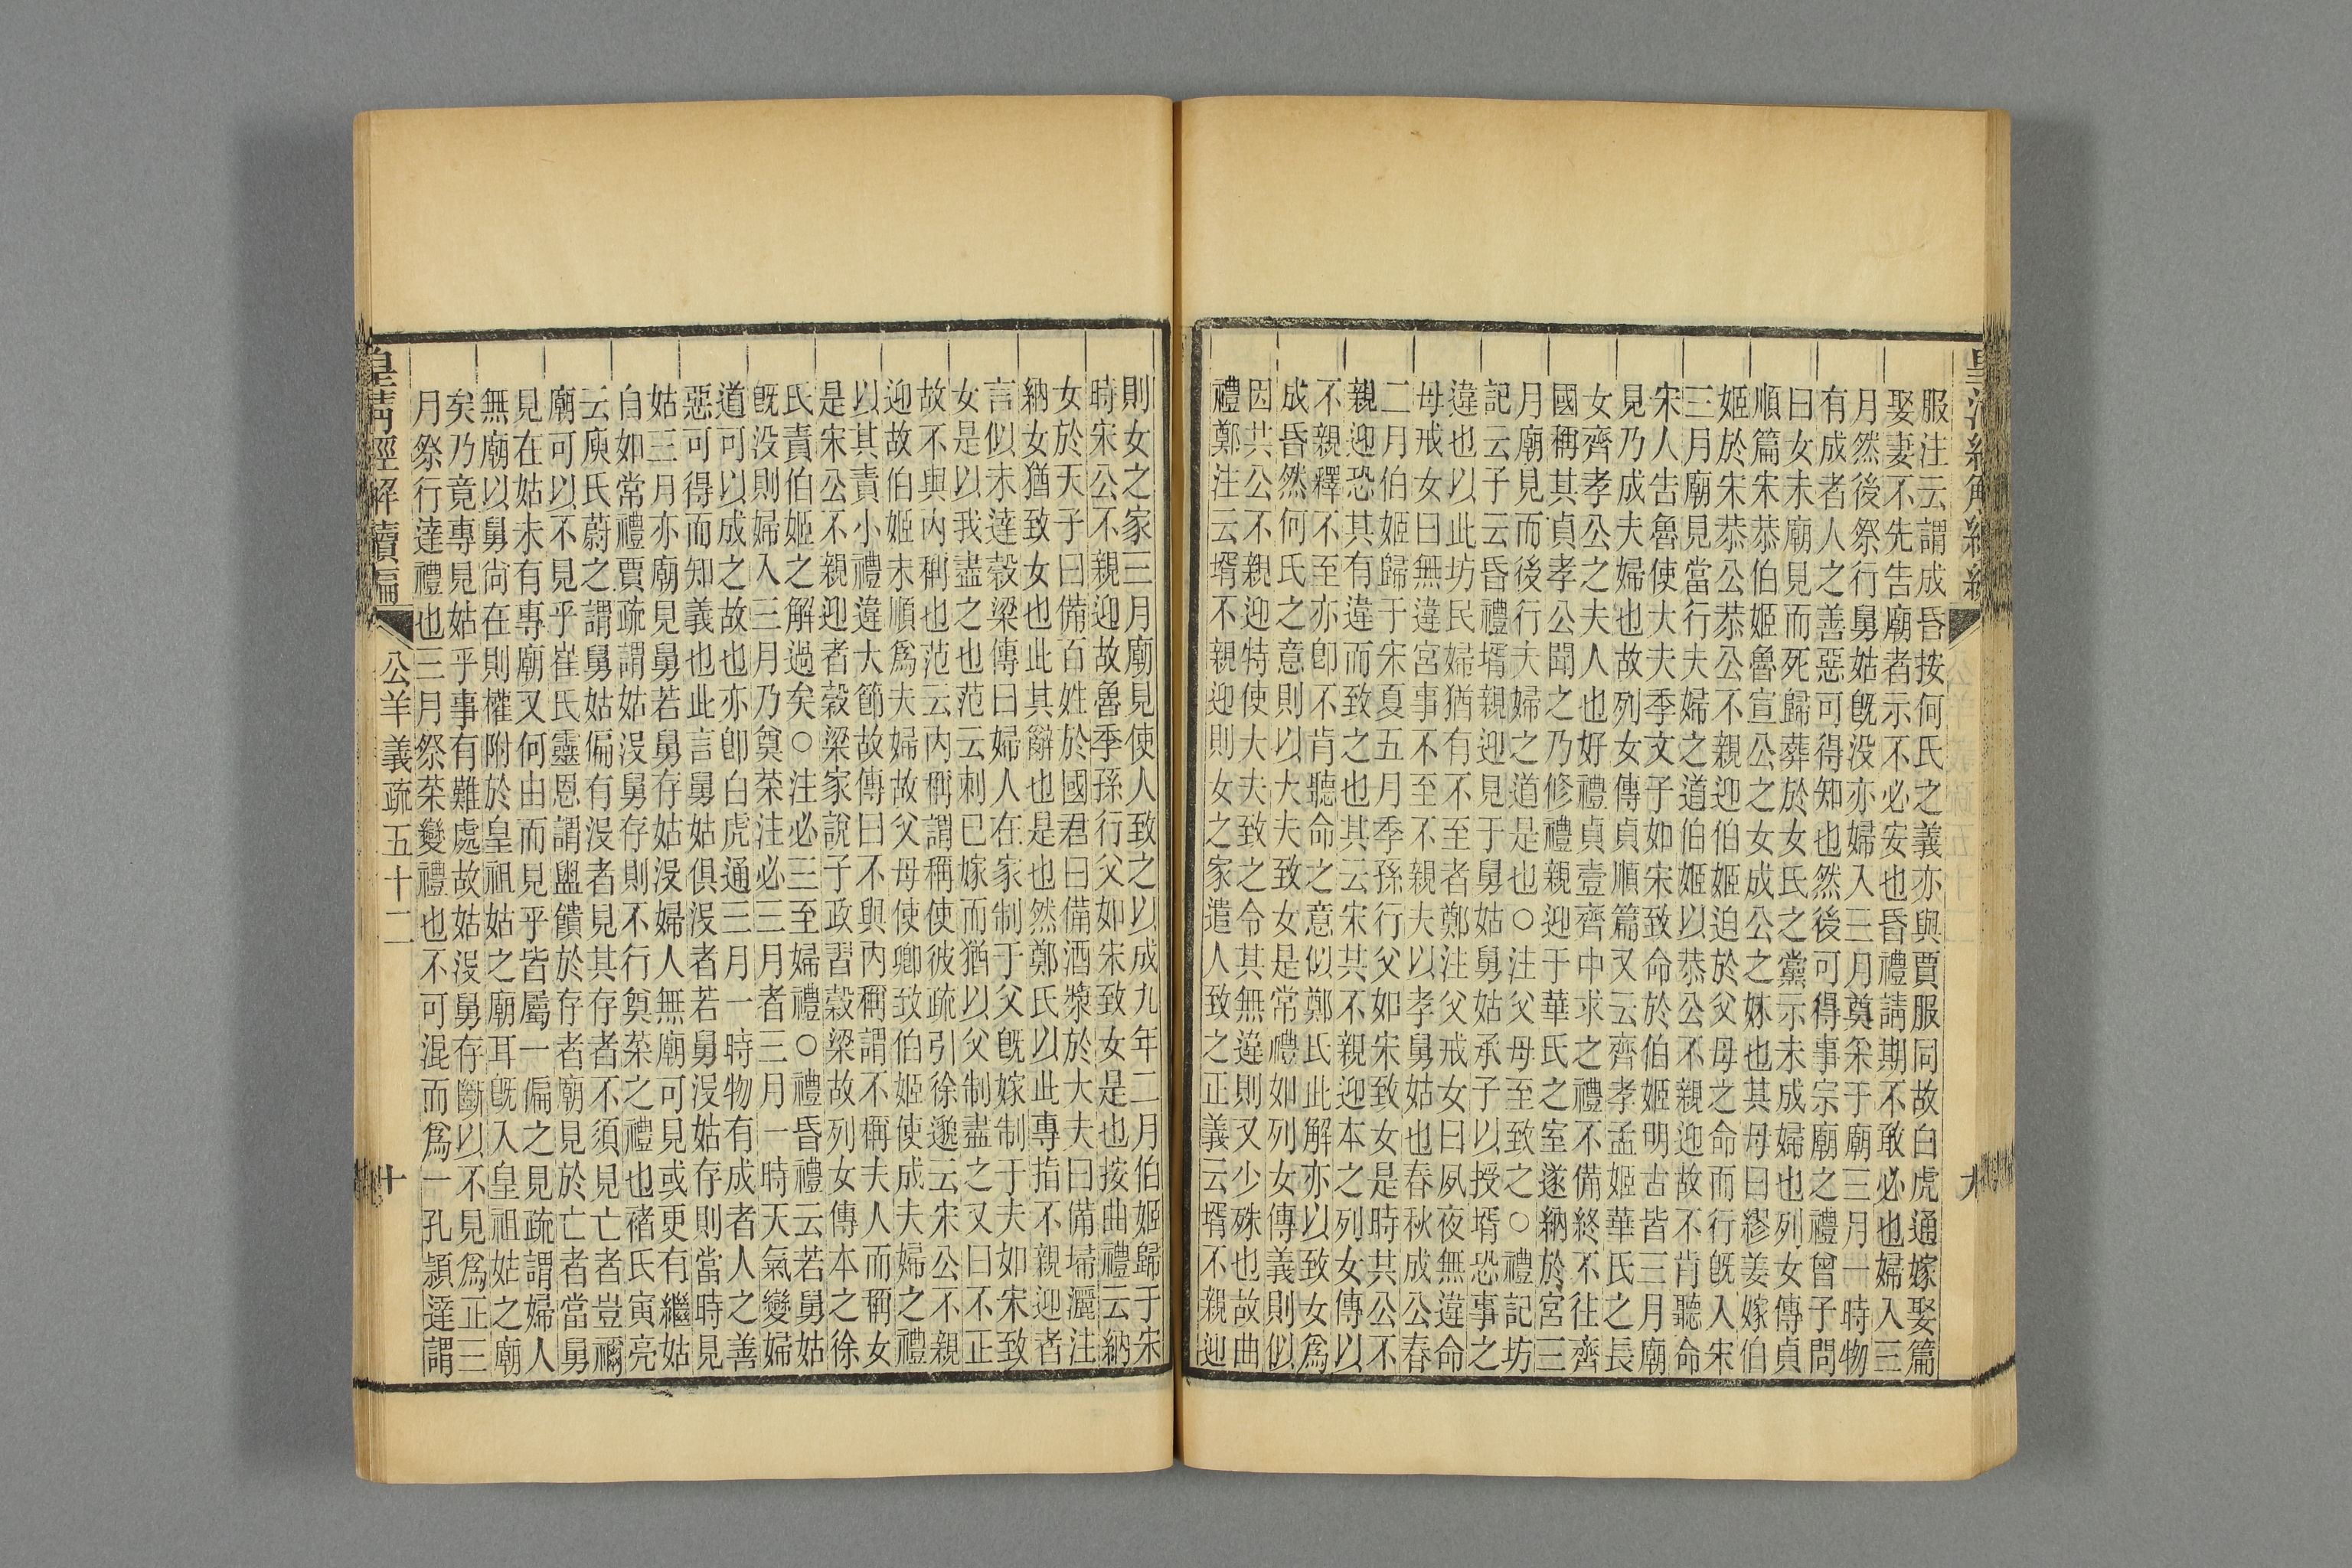 服注云謂成昏按何氏之義亦與賈服同故白虎通嫁娶篇
娶妻不先告廟者示不必安也昏禮請期不敢必也婦入三
月然後祭行舅姑旣没亦婦入三月奠采于廟三月一時物
有成者人之善惡可得知也然後可得事宗廟之禮曾子問
曰女未廟見而死歸葬於女氏之黨示未成婦也列女傳貞
順篇宋恭伯姬魯宣公之女成公之妹也其母曰繆姜嫁伯
姬於宋恭公恭公不親迎伯姬迫於父母之命而行旣入宋
三月廟見當行夫婦之道伯姬以恭公不親迎故不肯聽命
宋人告魯使大夫季文子如宋致命於伯姬明古皆三月廟
見乃成夫婦也故列女傳貞順篇又云齊孝孟姬華氏之長
女齊孝公之夫人也好禮貞壹齊中求之禮不備終不往齊
國稱其貞孝公聞之乃修禮親迎于華氏之室遂納於宮三
月廟見而後行夫婦之道是也○注父母至致之○禮記坊
記云子云昏禮壻親迎見于舅姑舅姑承子以授壻恐事之
違也以此坊民婦猶有不至者鄭注父戒女曰夙夜無違命
母戒女曰無違宮事不至不親夫以孝舅姑也春秋成公春
二月伯姬歸于宋夏五月季孫行父如宋致女是時共公不
親迎恐其有違而致之也其云宋共不親迎本之列女傳以
不親釋不至亦卽不肯聽命之意似鄭氏此解亦以致女爲
成昏然何氏之意則以大夫致女是常禮如列女傳義則似
因共公不親迎特使大夫致之令其無違則又少殊也故曲
禮鄭注云壻不親迎則女之家遣人致之正義云壻不親迎
則女之家三月廟見使人致之以成九年二月伯姬歸于宋
時宋公不親迎故魯季孫行父如宋致女是也按曲禮云納
女於天子曰備百姓於國君曰備酒漿於大夫曰備埽灑注
納女猶致女也此其辭也是也然鄭氏以此專指不親迎者
言似未達穀梁傳曰婦人在家制于父旣嫁制于夫如宋致
女是以我盡之也范云刺已嫁而猶以父制盡之又曰不正
故不與內稱也范云內稱謂稱使彼疏引徐邈云宋公不親
迎故伯姬未順爲夫婦故父母使卿致伯姬使成夫婦之禮
以其責小禮違大節故傳曰不與內稱謂不稱夫人而稱女
是宋公不親迎者穀梁家說子政習穀梁故列女傳本之徐
氏責伯姬之解過矣○注必三至婦禮○禮昏禮云若舅姑
旣没則婦入三月乃奠菜注必三月者三月一時天氣變婦
道可以成之故也亦卽白虎通三月一時物有成者人之善
惡可得而知義也此言舅姑俱没者若舅没姑存則當時見
姑三月亦廟見舅若舅存姑没婦人無廟可見或更有繼姑
自如常禮賈疏謂姑没舅存則不行奠菜之禮也褚氏寅亮
云庾氏蔚之謂舅姑偏有没者見其存者不須見亡者豈禰
廟可以不見乎崔氏靈恩謂盥饋於存者廟見於亡者當舅
見在姑未有專廟又何由而見乎皆屬一偏之見疏謂婦人
無廟以舅尙在則權附於皇祖姑之廟耳旣入皇祖姑之廟
矣乃竟專見姑乎事有難處故姑没舅存斷以不見爲正三
月祭行達禮也三月祭菜變禮也不可混而爲一孔穎達謂
皇清經解續編
公羊義疏五十二
十
九